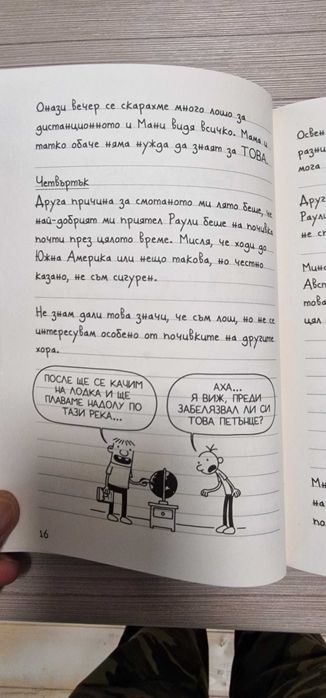 Онази вечер се скарахме много лошо за
дистанционното и Мани видя всичко. Мама и
татко обаче няма нужда да знаят за ТОВА.
Четвъртък
Друга причина за смотаното ми лято беше, че
най-добрият ми приятел Раули беше на почивка
почти през цялото време. Мисля, че ходи до
Южна Америка или нещо такова, но честно
казано, не съм сигурен.
Не знам дали това значи, че съм лош, но не се
интересувам особено от почивките на другите
хора.
ПОСЛЕ ЩЕ СЕ КАЧИМ
НА ЛОДКА И ЩЕ
ПЛАВАМЕ НАДОЛУ ПО
ТАЗИ РЕКА...
АХА...
Я ВИЖ, ПРЕДИ
ЗАБЕЛЯЗВАЛ ЛИ СИ
ТОВА ПЕТЪНЦЕ?
16
Освен
разни
мога
Друг
Раули
не сп
Мин
Авст
това
цял
Мн
на
по